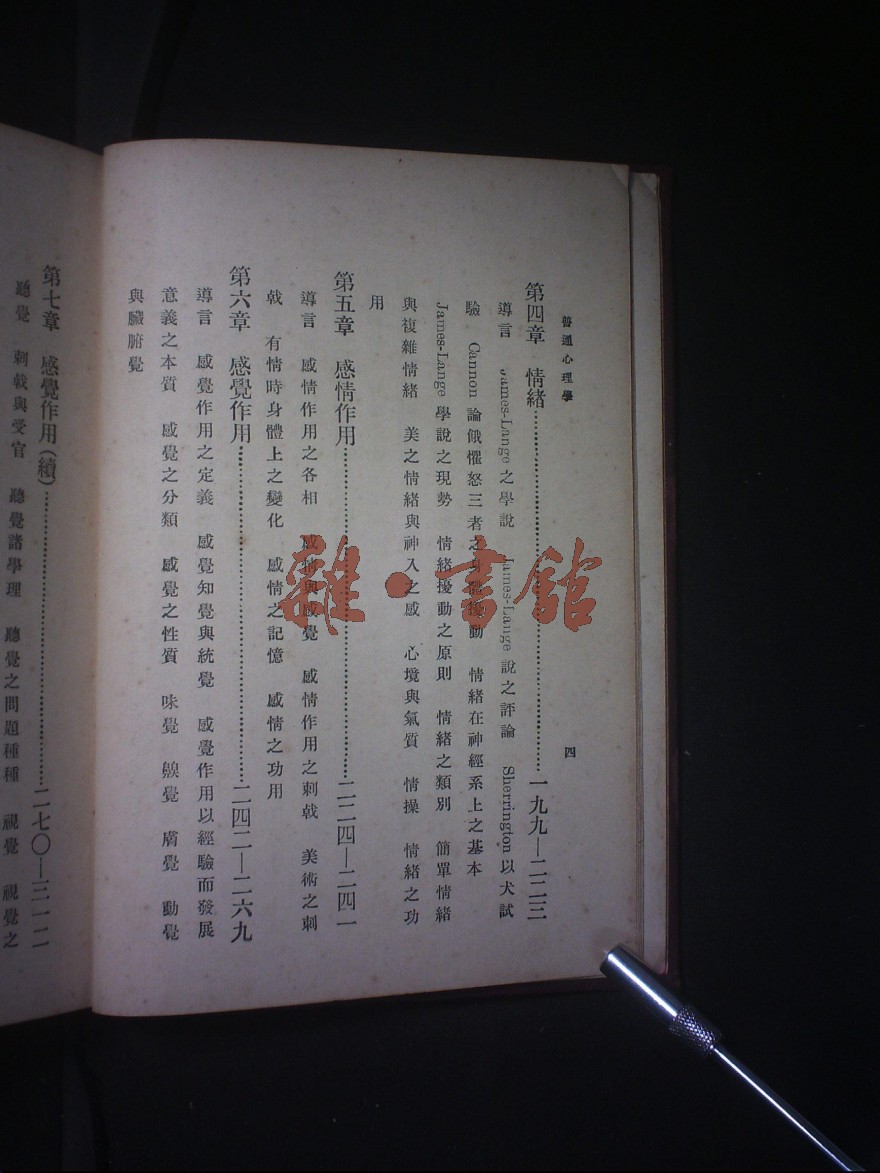 普通心理學
四
第四章 情緒……一九九—二二三
導言 James-Lange之學說 James-Lange說之評論 Sherrington以犬試
驗 Cannon論餓懼怒三者之身體擾動 情緒在神經系上之基本
James-Lange學說之現勢 情緒擾動之原則 情緒之類別 簡單情緒
與複雜情緒 美之情緒與神入之感 心境與氣質 情操 情緒之功
用
第五章 感情作用……二二四—二四一
導言 感情作用之各相 感情與感覺 感情作用之刺戟 美術之刺
戟 有情時身體上之變化 感情之記憶 感情之功用
第六章 感覺作用……二四二—二六九
導言 感覺作用之定義 感覺知覺與統覺 感覺作用以經驗而發展
意義之本質 感覺之分類 感覺之性質 味覺 嗅覺 膚覺 動覺
與臟腑覺
第七章 感覺作用(續)……二七〇—三一二
聽覺 刺戟與受官 聽覺諸學理 聽覺之問題種種 視覺 視覺之
雜·書館